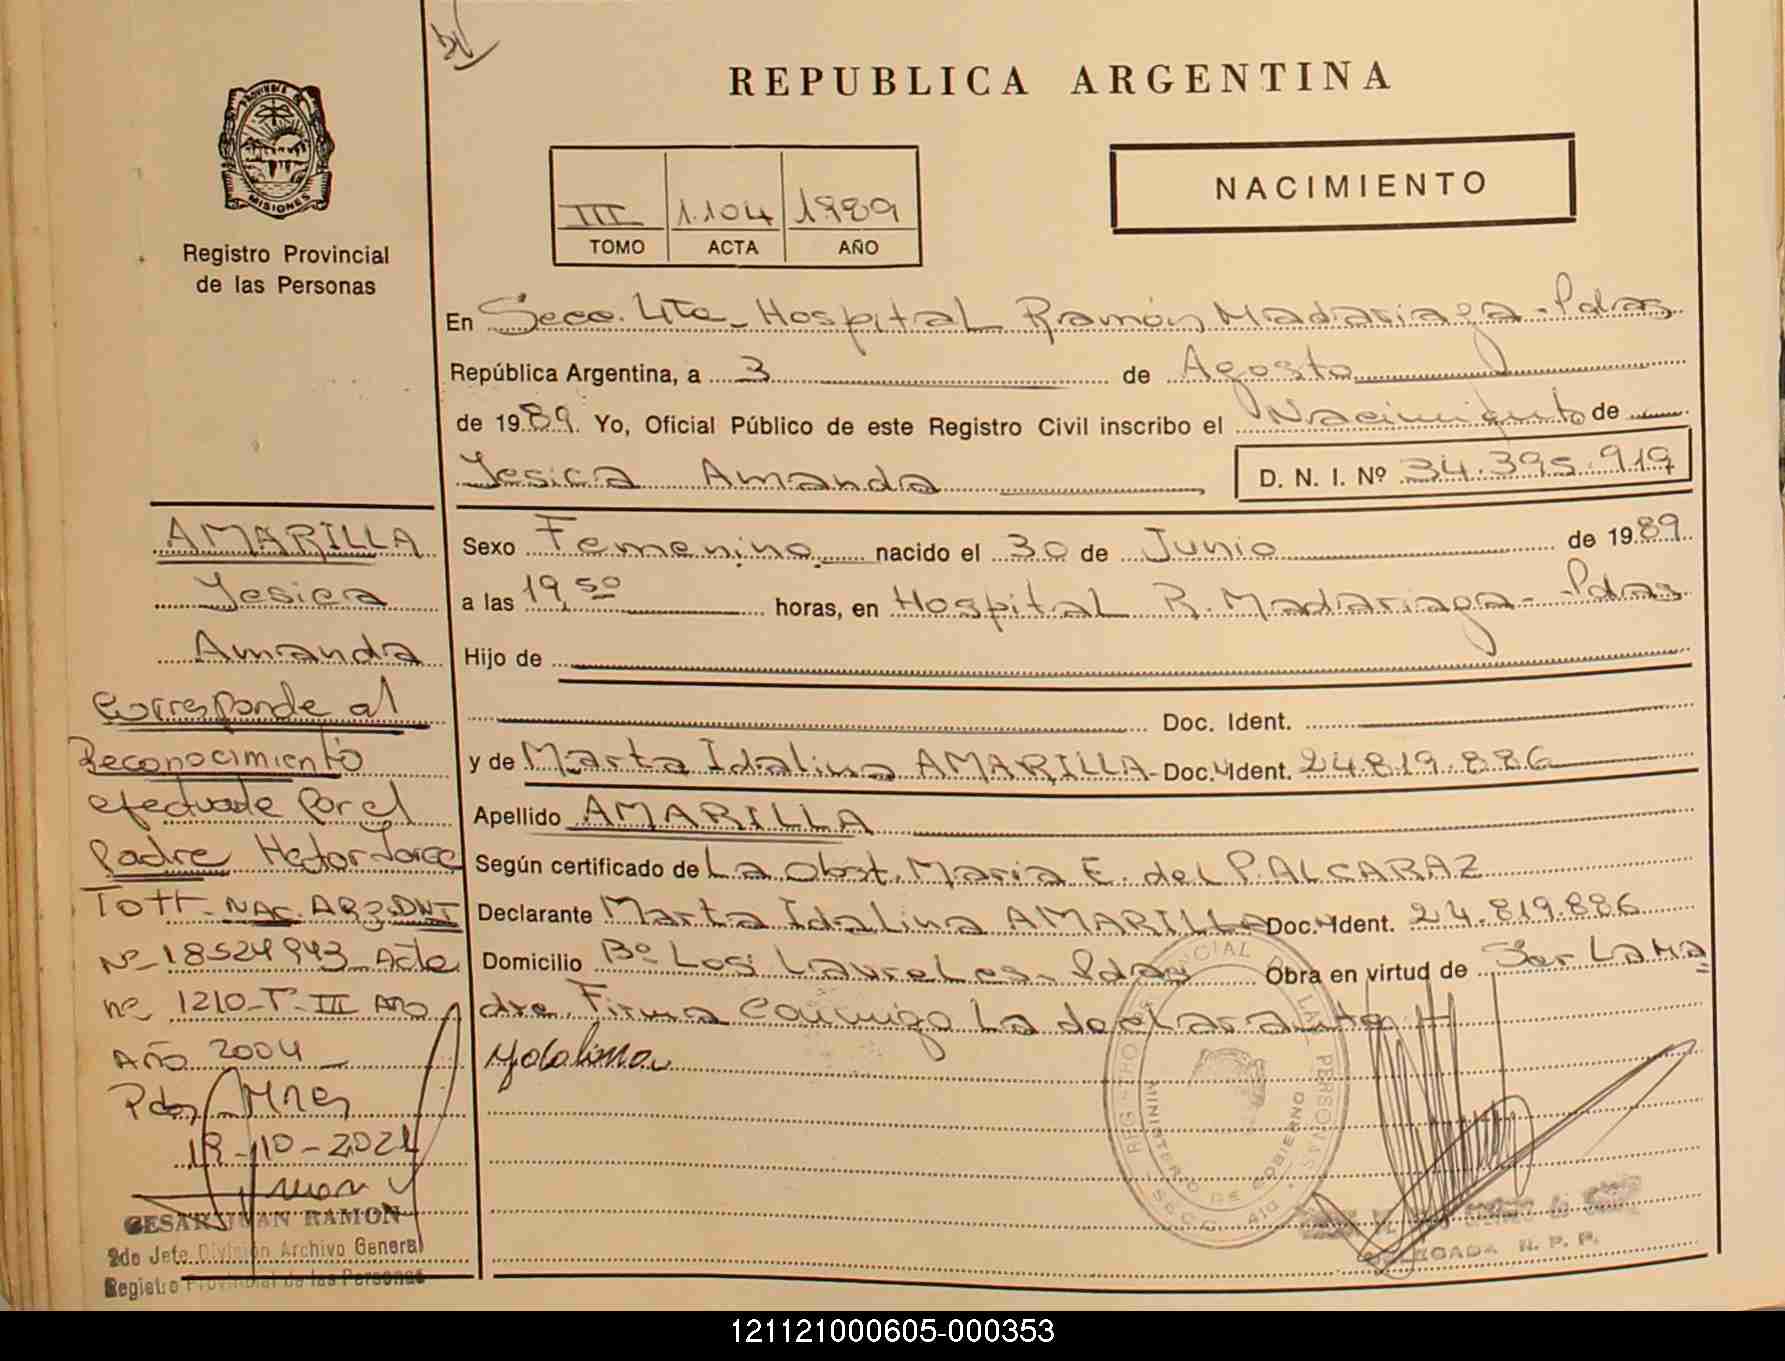 REPUBLICA ARGENTINA
PROVINCIA DE
MISIONES
Registro Provincial
de las Personas
III 1.104 1989
TOMO ACTA AÑO
NACIMIENTO
En Secc. 4ta - Hospital Ramón Madariaga - Pdas
República Argentina, a 3 de Agosto
de 1989. Yo, Oficial Público de este Registro Civil inscribo el Nacimiento de
Yesica Amanda
D. N. I. Nº 34.395.919
Sexo Femenino nacido el 30 de Junio de 1989
a las 19,50 horas, en Hospital R. Madariaga - Pdas
Hijo de
Doc. Ident.
y de Marta Idalina AMARILLA - Doc. Ident. 24.819.886
Apellido AMARILLA
Según certificado de La Obst. Maria E. del P. ALCARAZ
Declarante Marta Idalina AMARILLA Doc. Ident. 24.819.886
Domicilio Bº Los Laureles - Pdas Obra en virtud de Ser La Ma
dre. Firma Conmigo La declarante
AMARILLA
Yesica
Amanda
Corresponde al
Reconocimiento
efectuado por el
Padre Hector Jorge
Tott - NAC. ARG. DNI
Nº 18524943 Acta
nº 1210 - Tº III
Año 2004
Pdas Mnes
19-10-2021
CESAR JUAN RAMON
2do Jefe División Archivo General
Registro Provincial de las Personas
MINISTERIO DE GOBIERNO
R. P. P.
121121000605-000353